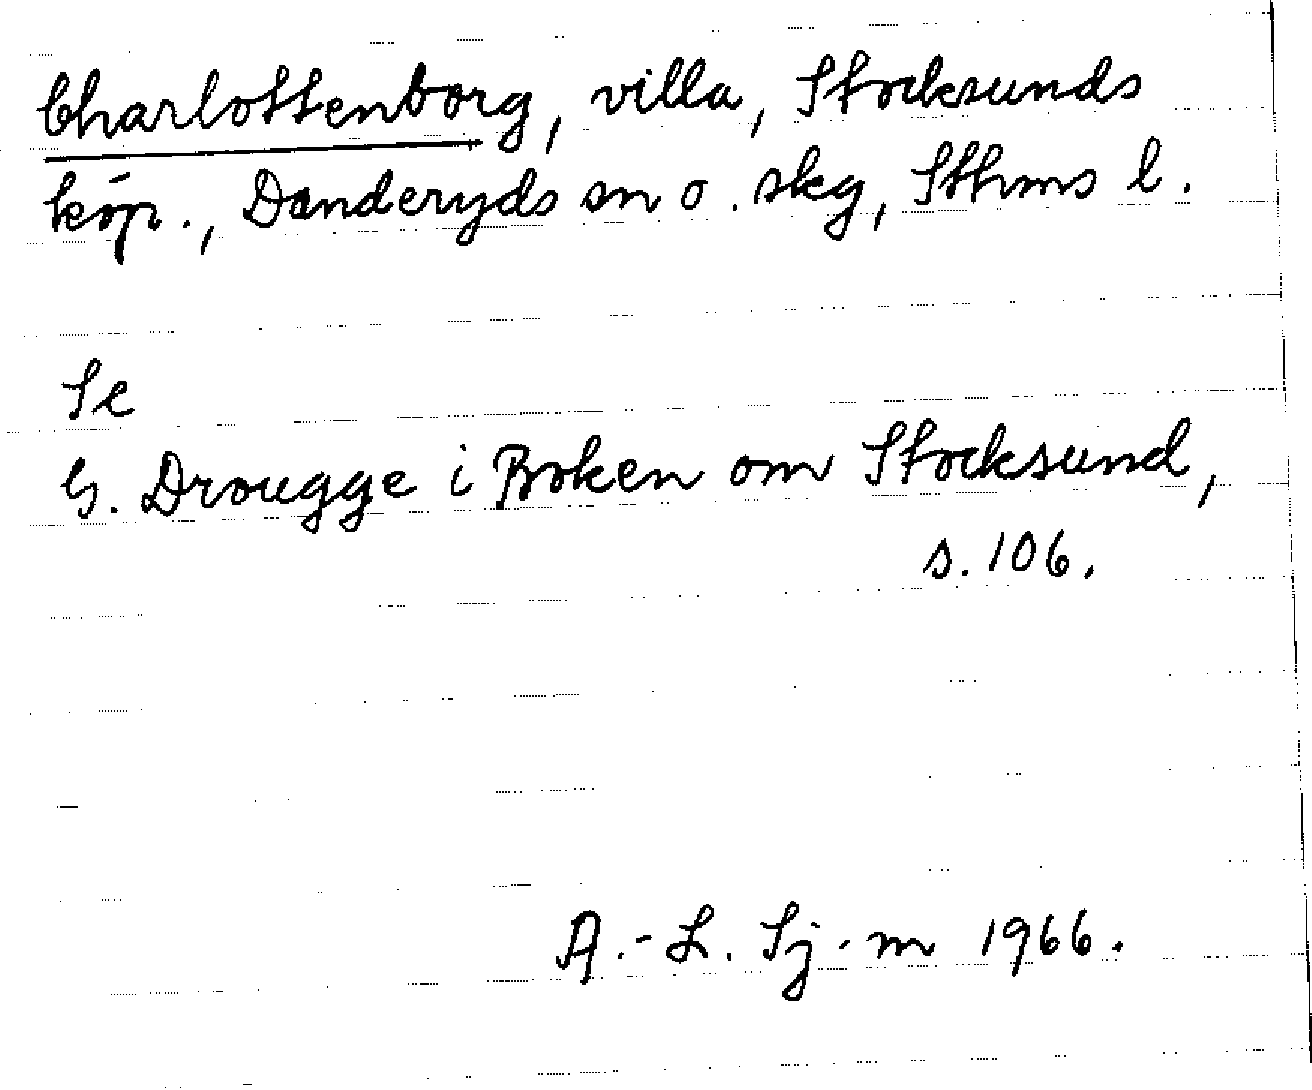 Charlottenborg, villa, Stocksunds
köp., Danderyds sn o. skg, Sthms l.
Se
G. Drougge i Boken om Stocksund,
s. 106.
A.-L. Sj-m 1966.